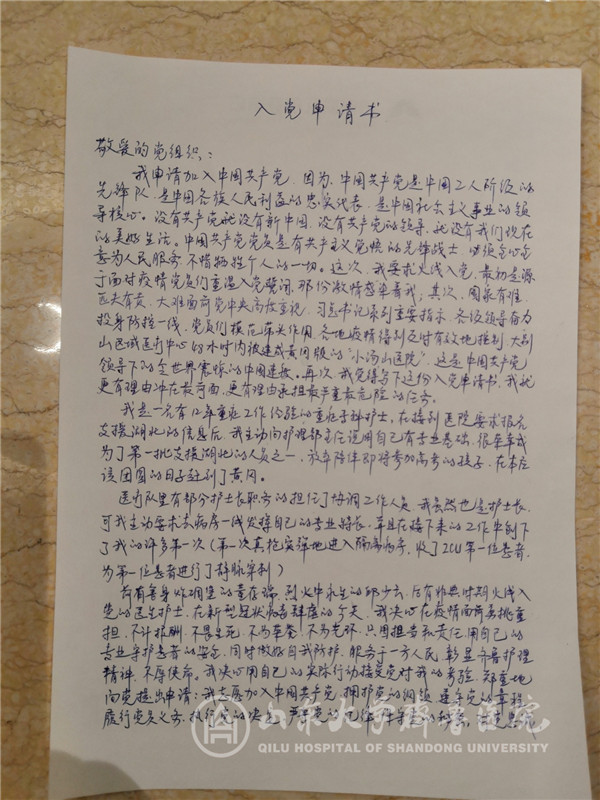 入党申请书
敬爱的党组织：
我申请加入中国共产党，因为，中国共产党是中国工人阶级的
先锋队，是中国各族人民利益的忠实代表，是中国社会主义事业的领
导核心。没有共产党就没有新中国，没有共产党的领导，就没有我们现在
的美好生活。中国共产党党员是有共产主义觉悟的先锋战士，必须全心全
意为人民服务，不惜牺牲个人的一切。这次，我要求火线入党，最初是源
于面对疫情党员们重温入党誓词，那份激情感染着我；其次，国家有难
匹夫有责，大难面前党中央高度重视，习总书记做到重要指示，各级领导奋力
投身防控一线，党员们模范带头作用，各地疫情得到及时有效地控制，大别
山区域医疗中心48小时内被建成黄冈版的“小汤山医院”，这是中国共产党
领导下的令全世界震惊的中国速度。再次，我觉得写下这份入党申请书，我就
更有理由冲在最前面，更有理由承担最严重最危险的任务。
我是一名有12年重症工作经验的重症专科护士，在接到医院要求报名
支援湖北的信息后，我主动向护理部主任说明自己有专业基础，很荣幸成
为了第一批支援湖北的人员之一，放弃陪伴即将参加高考的孩子，在本应
该团圆的日子赶到了黄冈。
医疗队里有部分护士长职务的担任了协调工作人员，我虽然也是护士长，
可我主动要求去病房一线发挥自己的专业特长，并且在接下来的工作中创下
了我的许多第一次（第一次真枪实弹地进入隔离病房，收了ICU第一位患者，
为第一位患者进行了静脉穿刺）
前有舍身炸碉堡的董存瑞，烈火中永生的邱少云，后有非典时期火线入
党的医生护士，在新型冠状病毒肆虐的今天，我决心在疫情面前勇挑重
担，不计报酬，不畏生死，不为荣誉，不为光环，只因担当和责任，用自己的
专业守护患者的安全，同时做好自我防护，服务于一方人民，彰显齐鲁护理
精神，不辱使命。我决心用自己的实际行动接受党对我的考验，郑重地
向党提出申请：我志愿加入中国共产党，拥护党的纲领，遵守党的章程
履行党员义务，执行党的决定，严守党的纪律，保守党的秘密，对党忠诚
山东大学齐鲁医院
QILU HOSPITAL OF SHANDONG UNIVERSITY